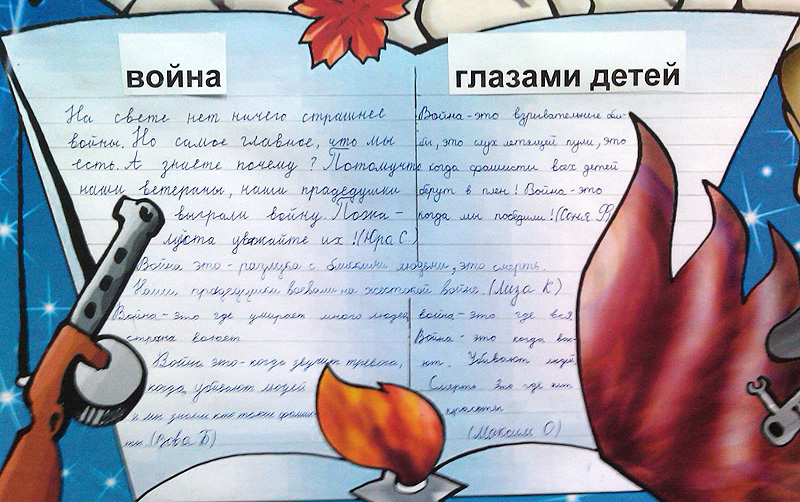 война
глазами детей
На свете нет ничего страшнее
войны. Но самое главное, что мы
есть. А знаете почему? Потомучто
наши ветераны, наши прадедушки
выграли войну. Пожа-
луйста уважайте их! (Юра С.)
Война-это взрывательные бом-
бы, это слух летящей пули, это
когда фашисты всех детей
берут в плен! Война-это
когда мы победили! (Соня Ф)
Война это-разлука с близкими людьми, это смерть.
Наши прадедушки воевали на жестокой войне. (Лиза К)
Война-это где умирает много людей
страна воюет
Война это-когда звучит тревога,
когда убивают людей
и мы знаем кто такие фашис
ты (Вова Б)
война-это где вся
Война-это когда вою-
ют. Убивают людей
Смерть. Это где нет
красоты
(Максим О)